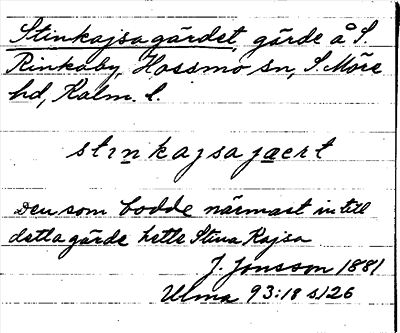 Stinkajsagärdet, gärde å S.
Rinkaby, Hossmo sn, S. Möre
hd, Kalm. l.
stinkajsajaert
Den som bodde närmast intill
detta gärde hette Stina Kajsa
J. Jonsson 1881
Ulma 93:18 s126